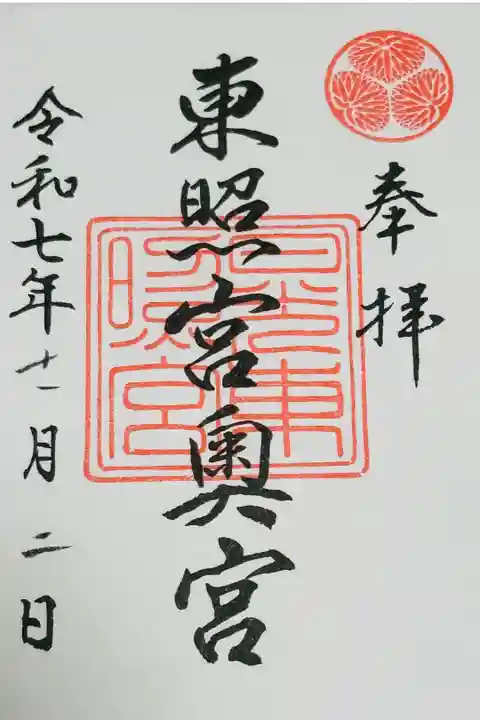 奉拝
東照宮奥宮
日光東照宮
令和七年十一月二日